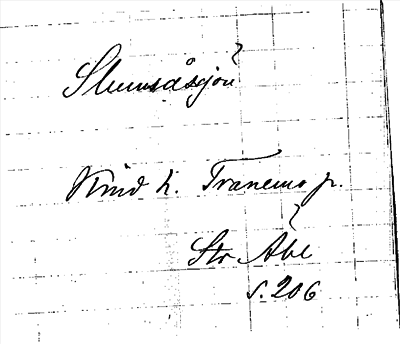 Slumsåsjön
Kind h. Tranemo p.
Str Åbl
s. 206